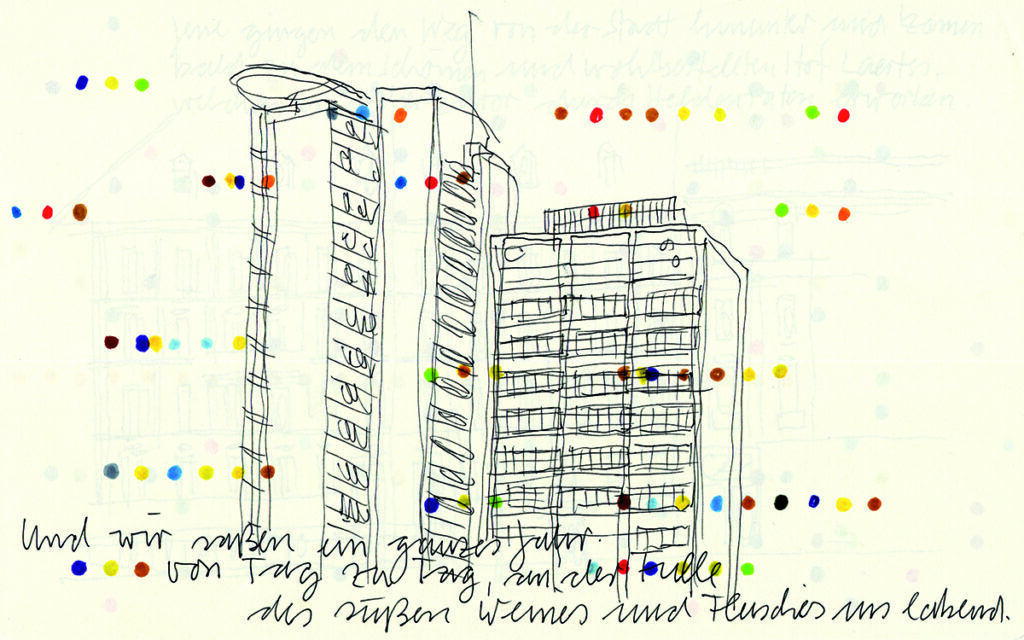 Jene gingen den Weg von der Stadt hinunter und kamen
bald zu dem schönen und wohlbestellten Hof Laertes,
durch Heldentaten erworben.
Und wir saßen ein ganzes Jahr.
von Tag zu Tag, an der Fülle
des süßen Weines und Fleisches uns labend.